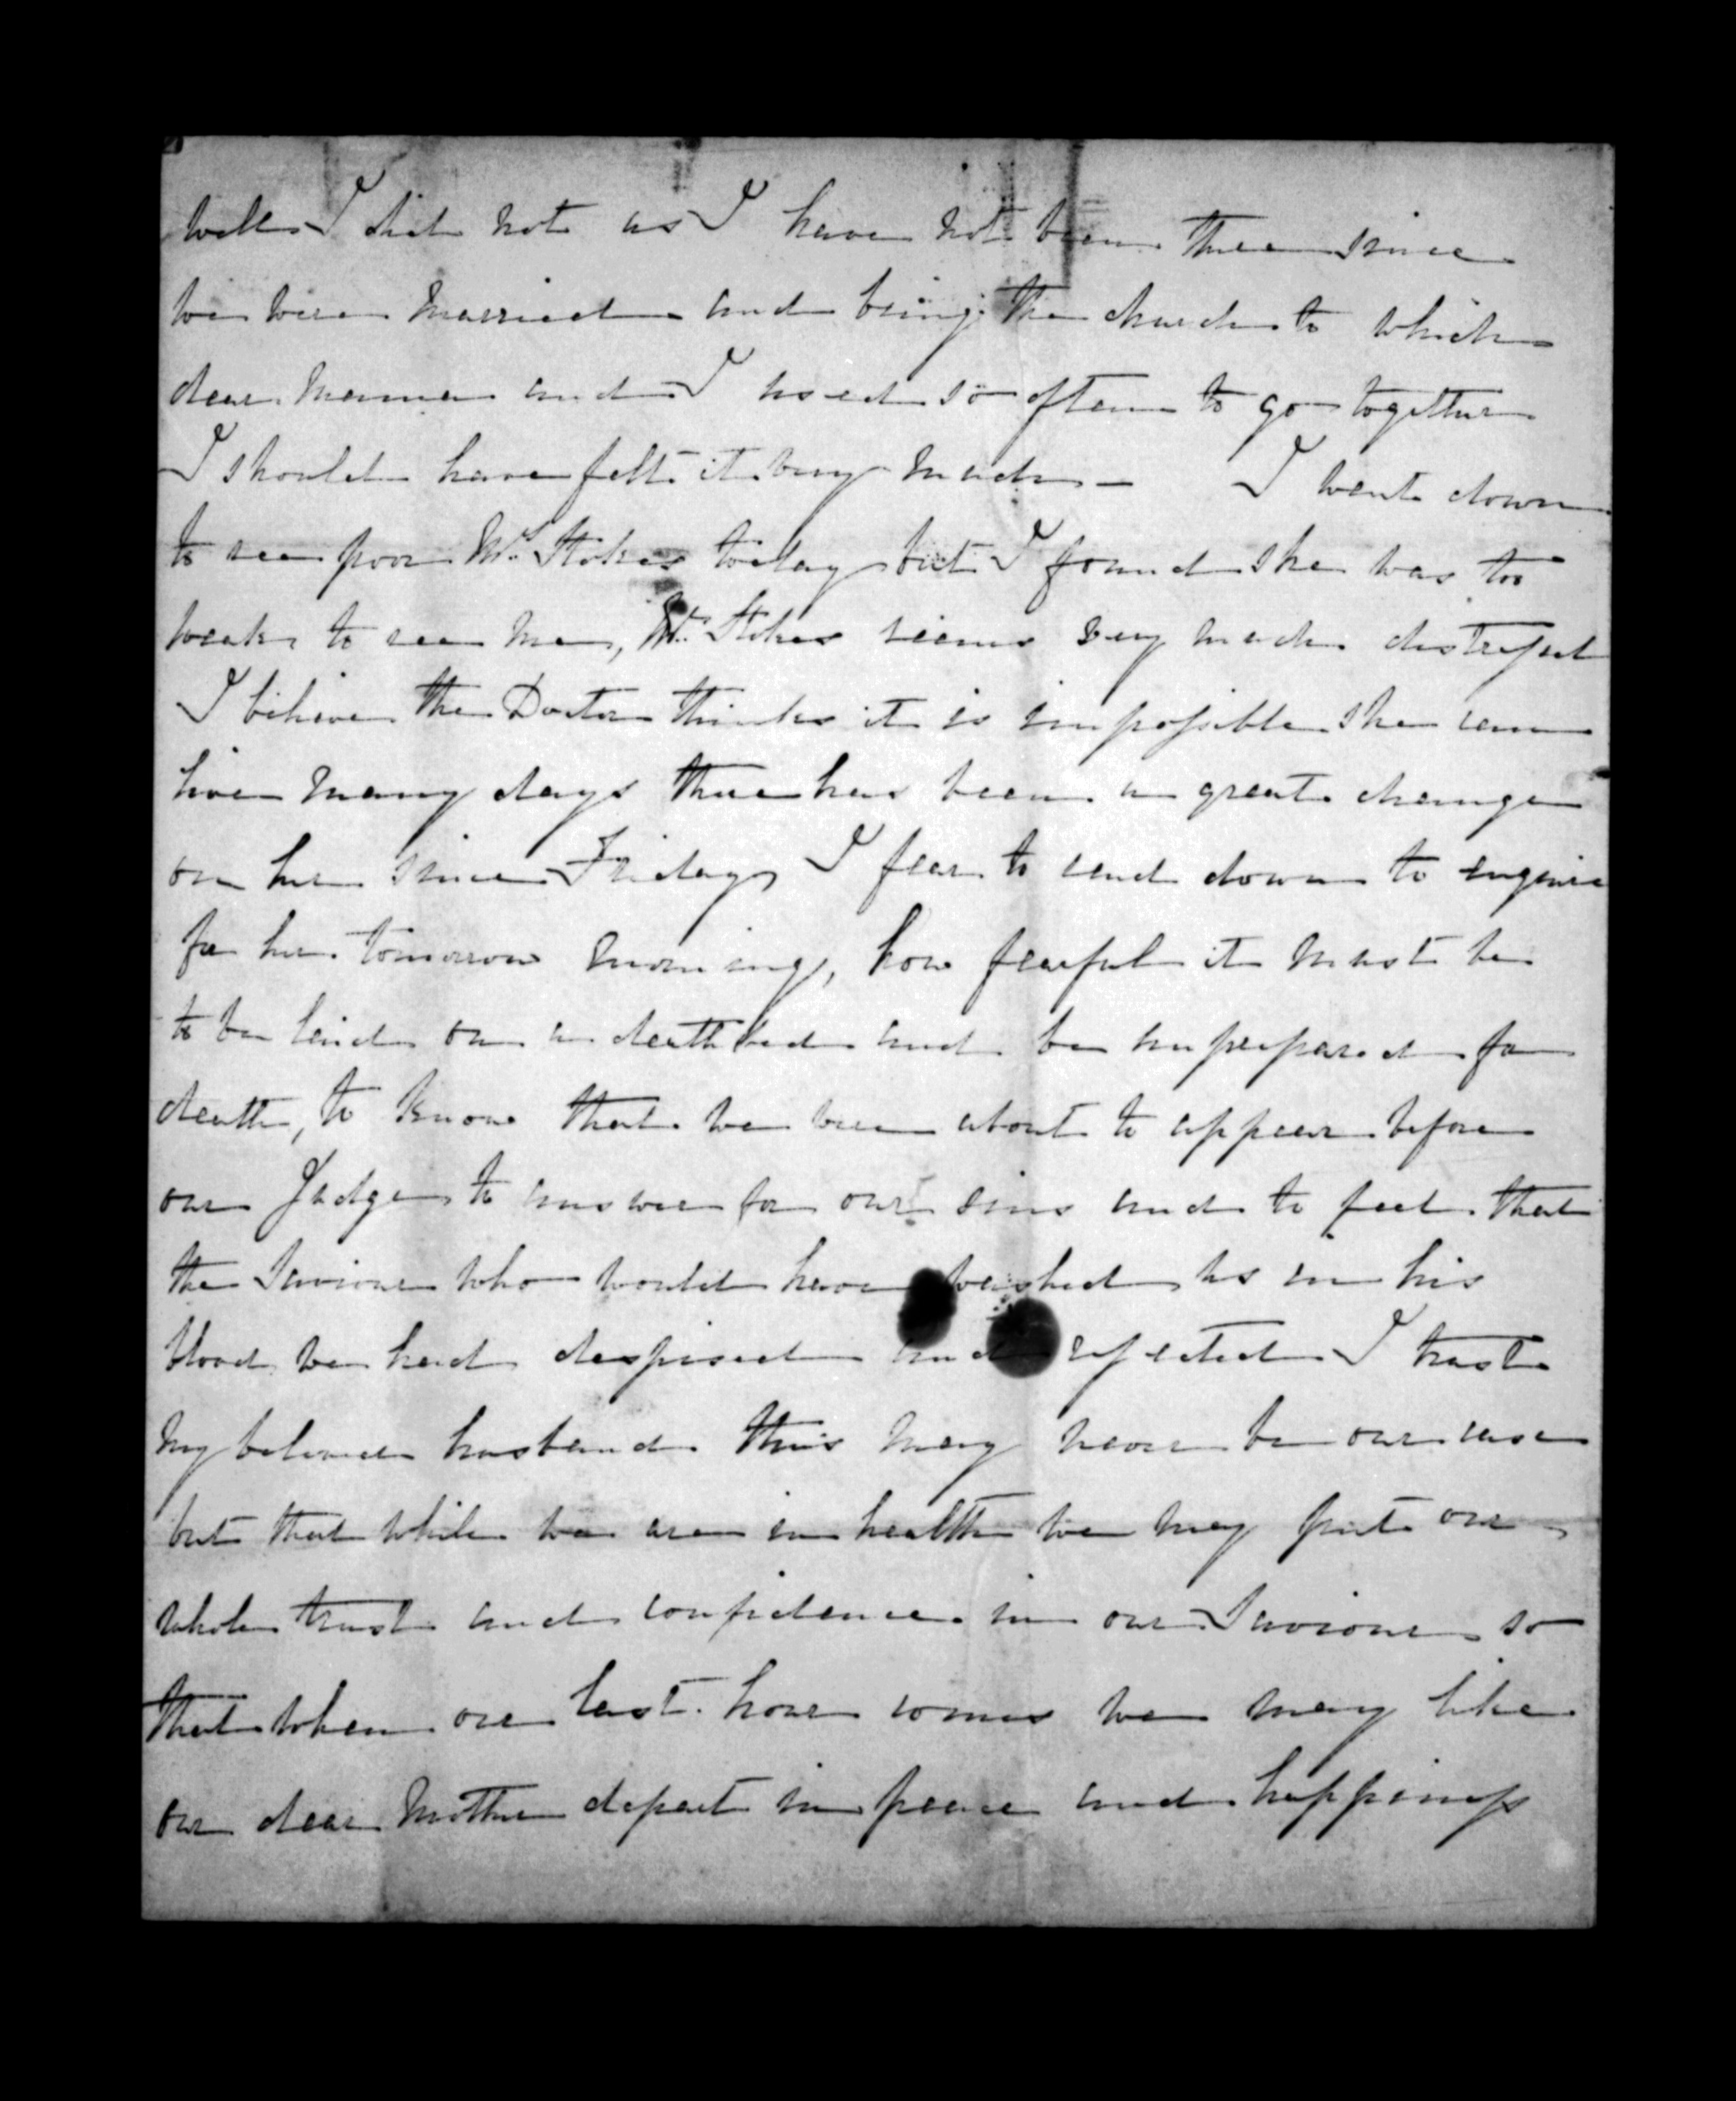 well I did not as I have not been there since
we were married and being the church to which
dear Mamma and I used so often to go together
I should have felt it very much — I went down
to see poor Mrs Stokes today but I found she was too
weak to see me, Mr Stokes seems very much distressed
I believe the Doctor thinks it is impossible she can
live many days there has been a great change
on her since Friday, I fear to send down to enquire
for her tomorrow morning, how fearful it must be
to be laid on a death bed and be unprepared for
death, to know that we were about to appear before
our Judge to answer for our sins and to feel that
the Saviour who would have washed us in his
blood we had despised and rejected I trust
my beloved husband this may never be our case
but that while we are in health we may put our
whole trust and confidence in our Saviour so
that when our last hour comes we may like
our dear Mother depart in peace and happiness